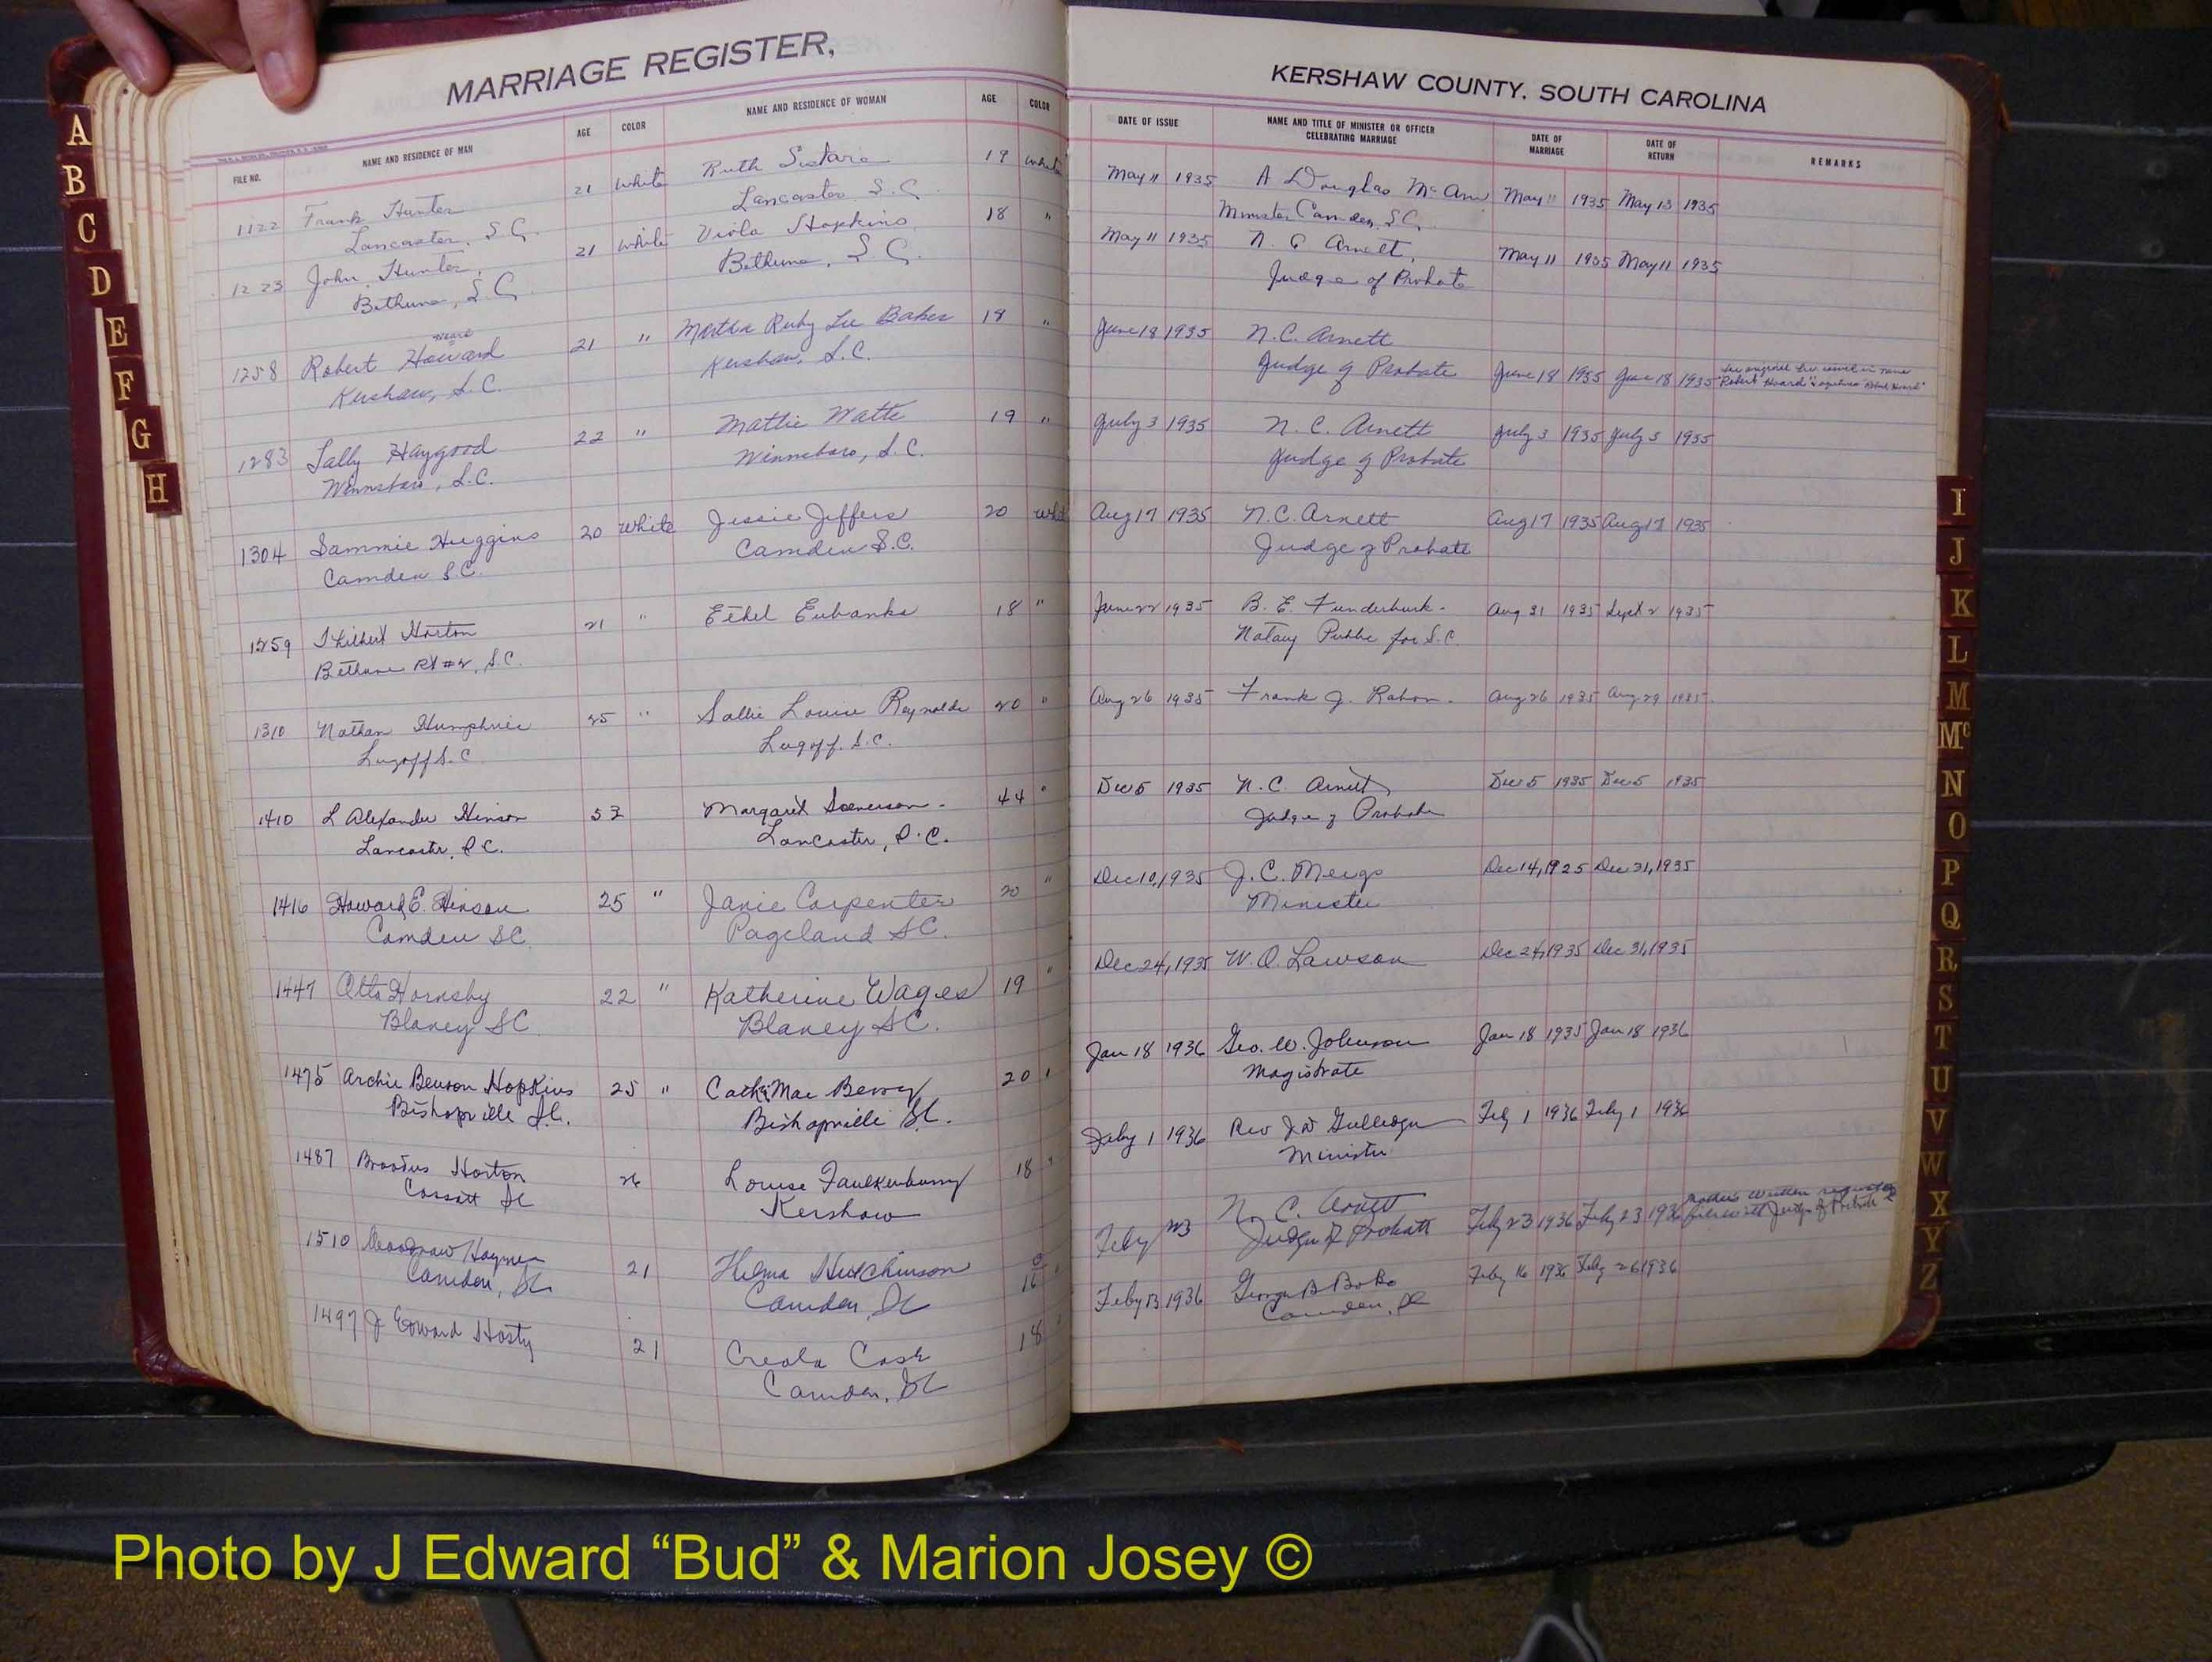 MARRIAGE REGISTER,
FILE NO. NAME AND RESIDENCE OF MAN AGE COLOR NAME AND RESIDENCE OF WOMAN AGE COLOR
1122 Frank Hunter 21 White Ruth Sistare 19 White
Lancaster, S.C. Lancaster S.C.
1223 John Hunter, 21 White Viola Hopkins 18 "
Bethune, S.C. Bethune, S.C.
1258 Robert Howard 21 " Martha Ruby Lee Baker 18 "
Kershaw, S.C. Kershaw, S.C.
1283 Haygood 22 " Mattie Watts 19 "
Winnsboro, S.C. Winnsboro, S.C.
1304 Sammie Huggins 20 White Jessie Jeffers 20
Camden S.C. Camden S.C.
1259 Horton 21 " Ethel Eubanks 18 "
Bethune Rt #2, S.C.
1310 Nathan Humphries 25 " Sallie Louise Reynolds 20 "
Lugoff S.C. Lugoff. S.C.
1410 L Alexander Hinson 53 Margaret 44 "
Lancaster, S.C. Lancaster, S.C.
1416 Howard E. Hinson 25 " Janie Carpenter 20 "
Camden SC. Pageland SC.
1447 Otto Hornsby 22 " Katherine Wages 19 "
Blaney SC Blaney SC.
1475 Archie Benson Hopkins 25 " Mae Berry 20 "
Bishopville S.C. Bishopville S.C.
1487 Broadus Horton 26 Louise Faulkenberry 18 "
Cassatt SC Kershaw
1510 Woodrow Haynes 21 Helma Hutchinson 16 "
Camden, SC Camden, SC
1497 J Edward Hasty 21 Creola Cash 18 "
Camden, SC
KERSHAW COUNTY. SOUTH CAROLINA
DATE OF ISSUE NAME AND TITLE OF MINISTER OR OFFICER CELEBRATING MARRIAGE DATE OF MARRIAGE DATE OF RETURN REMARKS
May 11 1935 A Douglas May 11 1935 May 13 1935
Minister Camden, S.C.
May 11 1935 N. C Arnett, May 11 1935 May 11 1935
Judge of Probate
June 18 1935 N. C. Arnett
Judge of Probate June 18 1935 June 18 1935
July 3 1935 N. C. Arnett July 3 1935 July 5 1935
Judge of Probate
Aug 17 1935 N. C. Arnett Aug 17 1935 Aug 17 1935
Judge of Probate
June 22 1935 B. E. Funderburk. Aug 31 1935 Sept 2 1935
Notary Public for S.C.
Aug 26 1935 Frank J. Rabon. Aug 26 1935 Aug 29 1935
Dec 5 1935 N. C. Arnett Dec 5 1935 Dec 5 1935
Judge of Probate
Dec 10, 1935 J. C. Meigs Dec 14, 1925 Dec 31, 1935
Minister
Dec 24, 1935 W. O. Lawson Dec 24, 1935 Dec 31, 1935
Jan 18 1936 Geo. W. Johnson Jan 18 1935 Jan 18 1936
Magistrate
Feby 1 1936 Rev Feby 1 1936 Feby 1 1936
Minister
Feby 23 N. C. Arnett Feby 23 1936 Feby 23 1936 Mother's written request
Judge of Probate filed with Judge of Probate
Feby 13 1936 George Feby 16 1936 Feby 26 1936
Camden, SC
A
B
C
D
E
F
G
H
I
J
K
L
M
Mc
N
O
P
Q
R
S
T
U
V
W
X
Y
Z
Photo by J Edward “Bud” & Marion Josey ©